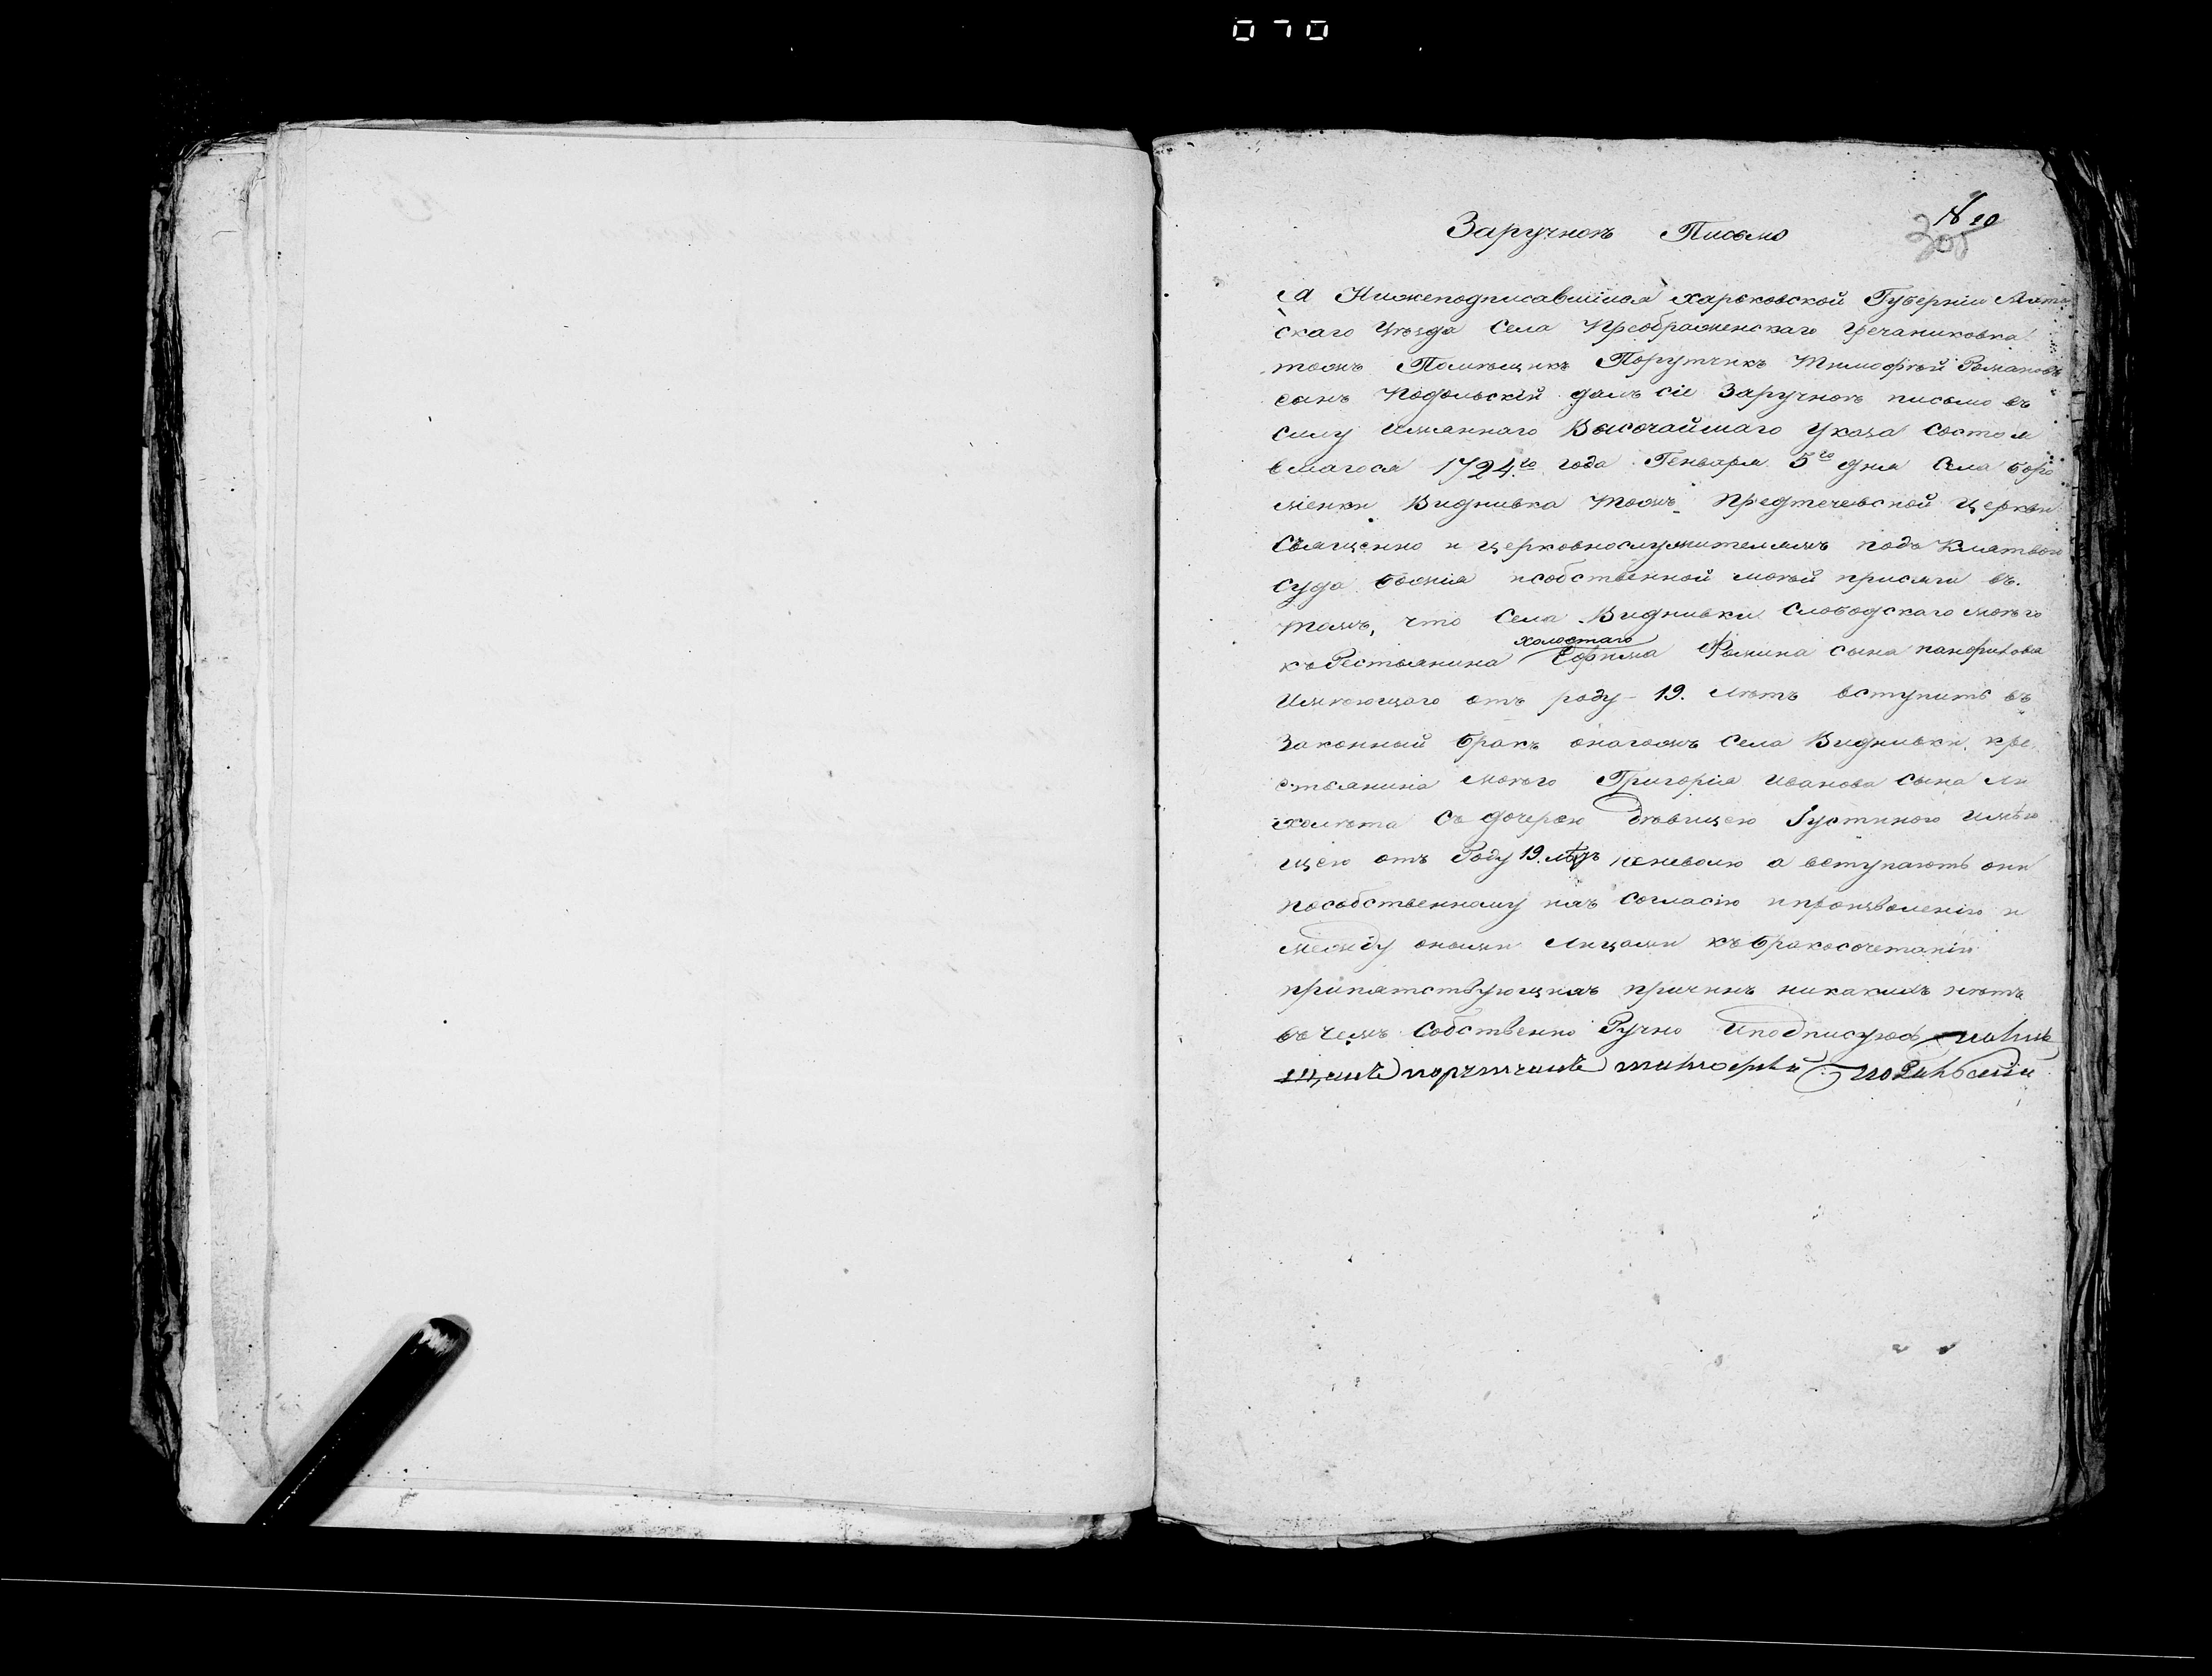 070
№ 10
305
Заручноѣ Письмо
Я Нижеподписавшійся Харьковской Губерніи
скаго Уѣзда Села Преображенскаго Гречаниковка
тожъ Помѣщикъ Порутчикъ Тимофѣй Романовъ
сынъ Подольскій далъ сіе Заручноѣ письмо въ
силу Имяннаго Высочайшаго Указа Состояв
вшагося 1724го года Генваря 5го дня Села Боро
мленки Виднивка тожъ Предтечевской Церкви
Священно и церковнослужителямъ подъ Клятвою
суда божія исобственной моѣй присяги въ
томъ, что Села Виднивки Слободскаго моѣго
холостаго
къРестьянина Ефима Фомина сына
Имѣющаго отъ роду 19. лѣтъ вступить въ
Законный бракъ онагожъ Села Виднивки кре
стьянина моѣго Григорія Иванова сына Ли
холѣта Съ дочерѣю Дѣвицею Іустиною имѣю
щею отъ Роду 19. лѣтъ неневолю а вступаютъ они
пособственному ихъ Согласію ипроизволенію и
между оными Лицами къбракосочетаніи
припятствующихъ причинъ никакихъ нѣтъ
въ чемъ Собственно Ручно Иподписуюсь помѣ
щикъ порутчикъ тимофѣй подольскій